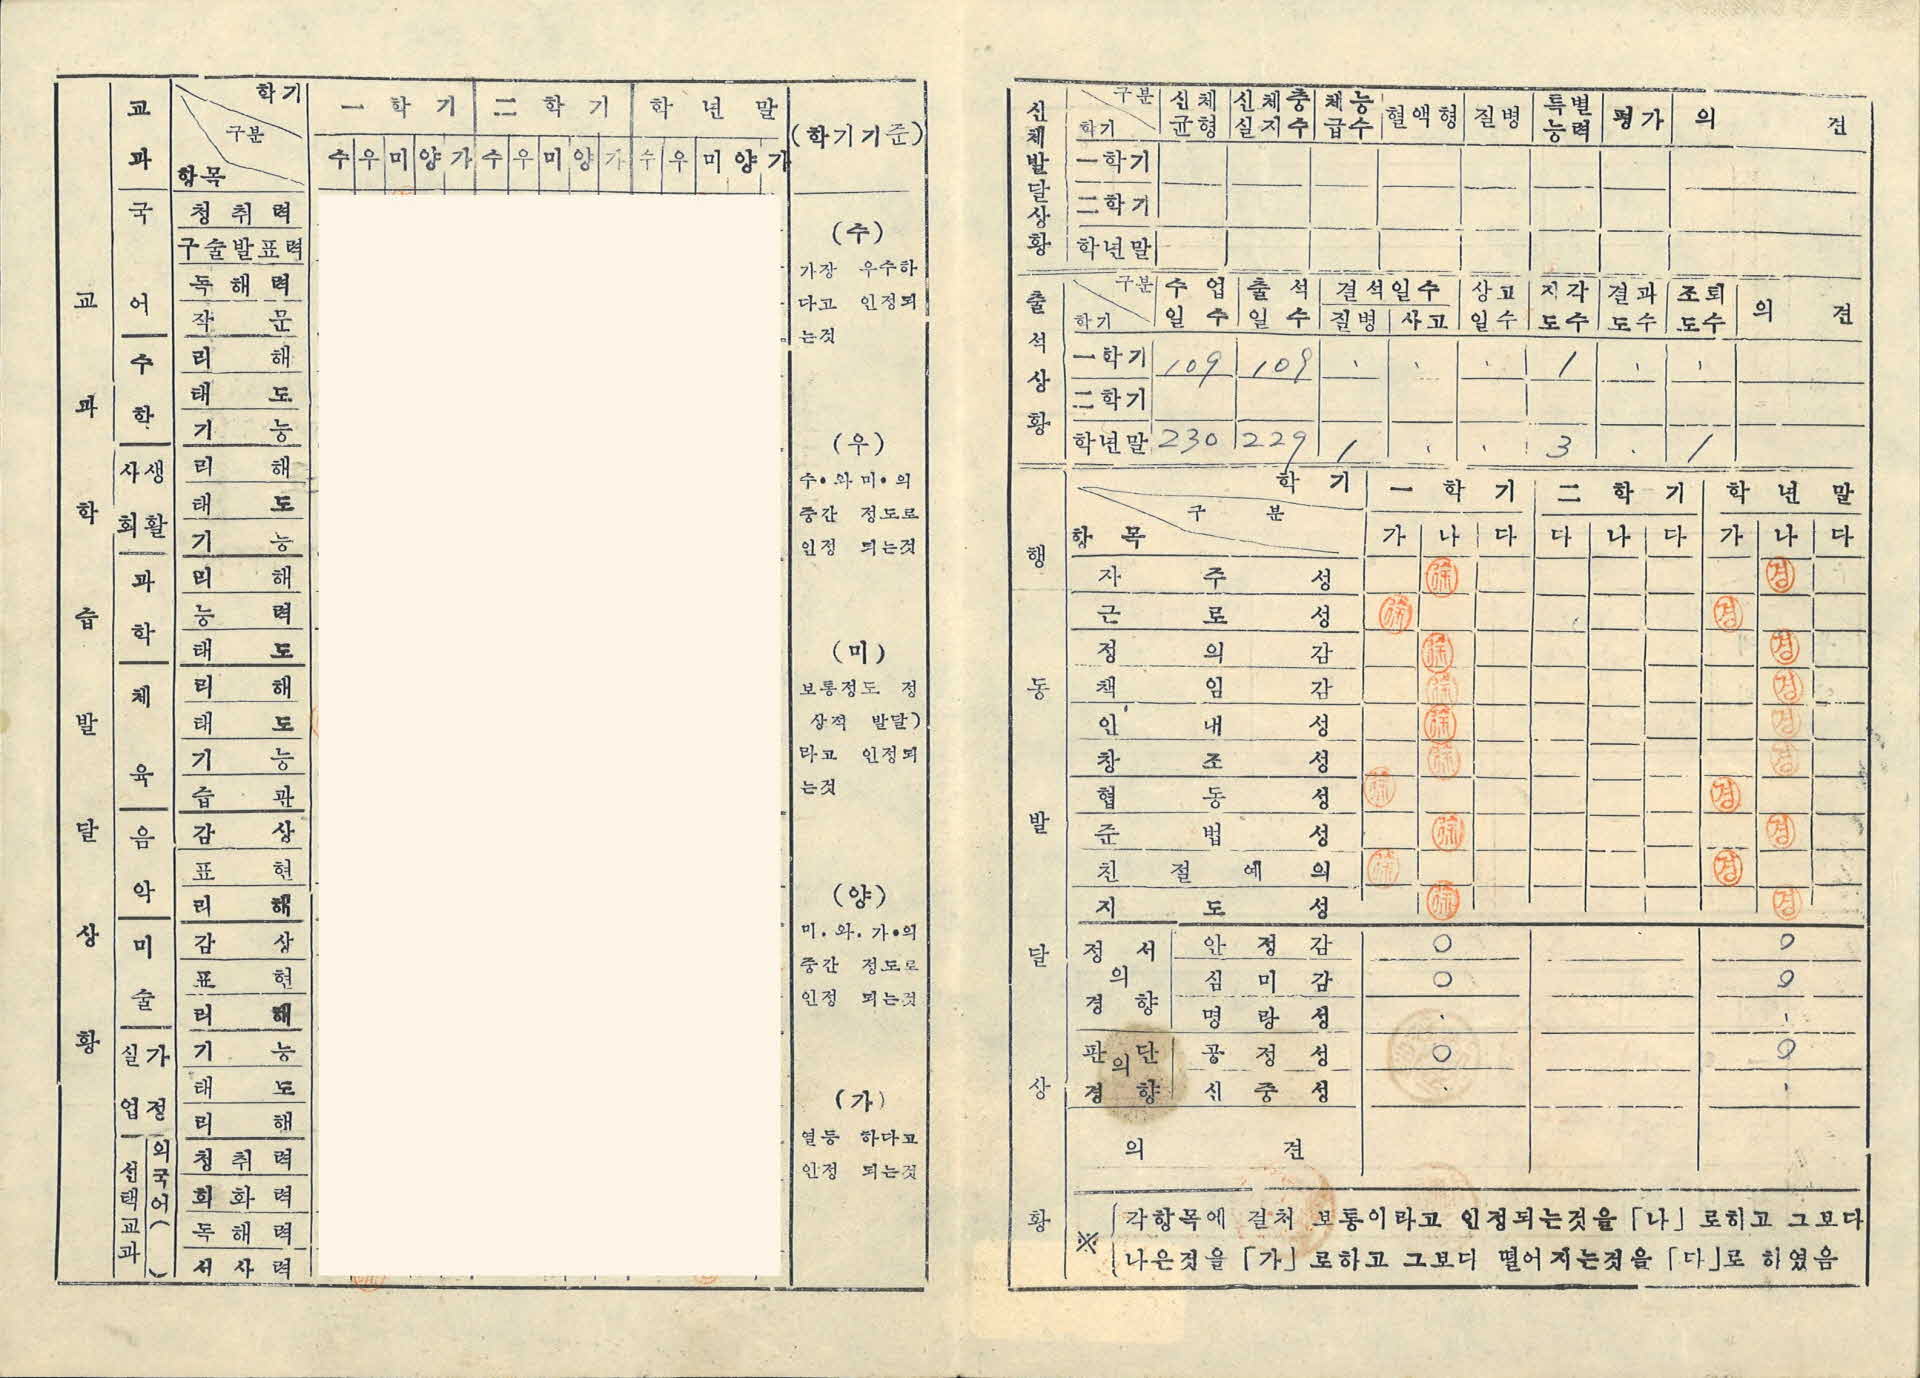 교과학습발달상황
교과
학기
구분
항목
一학기 二학기 학년말
(학기기준)
수 우 미 양 가 수 우 미 양 가 수 우 미 양 가
국어
청취력
구술발표력
독해력
작문
수학
리해
태도
기능
사회생활
리해
태도
기능
과학
리해
능력
태도
체육
리해
태도
기능
습관
음악
감상
표현
리해
미술
감상
표현
리해
실업가정
기능
태도
리해
선택교과
외국어( )
청취력
회화력
독해력
서사력
(수)
가장 우수하
다고 인정되
는것
(우)
수·와미·의
중간 정도로
인정 되는것
(미)
보통정도 정
상적 발달)
라고 인정되
는것
(양)
미·와·가·의
중간 정도로
인정 되는것
(가)
열등 하다고
인정 되는것
신체발달상황
구분
학기
신체균형 신체충실지수 체능급수 혈액형 질병 특별능력 평가 의견
一학기
二학기
학년말
출석상황
구분
학기
수업일수 출석일수 결석일수 상고일수 지각도수 결과도수 조퇴도수 의견
질병 사고
一학기 109 109 · · · 1 · ·
二학기
학년말 230 229 1 · · 3 · 1
행동발달상황
학기
구분
항목
一학기 二학기 학년말
가 나 다 다 나 다 가 나 다
자주성 徐 경
근로성 徐 경
정의감 徐 경
책임감 徐 경
인내성 徐 경
창조성 徐 경
협동성 徐 경
준법성 徐 경
친절예의 徐 경
지도성 徐 경
정서의경향
안정감 ○ ○
심미감 ○ ○
명랑성 · ·
판단의경향
공정성 ○ ○
신중성 · ·
의견
※ 각항목에 걸처 보통이라고 인정되는것을「나」로하고 그보다
나은것을「가」로하고 그보다 떨어지는것을「다」로 하였음